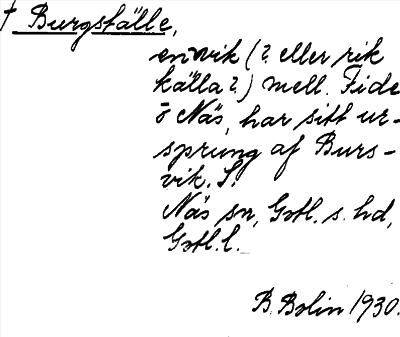 † Burgsfälle,
en vik (? eller rik
källa?) mell. Fide
o Näs, har sitt ur-
sprung af Burs-
vik. S.
Näs sn, Gotl. s. hd,
Gotl. l.
B. Bolin 1930.